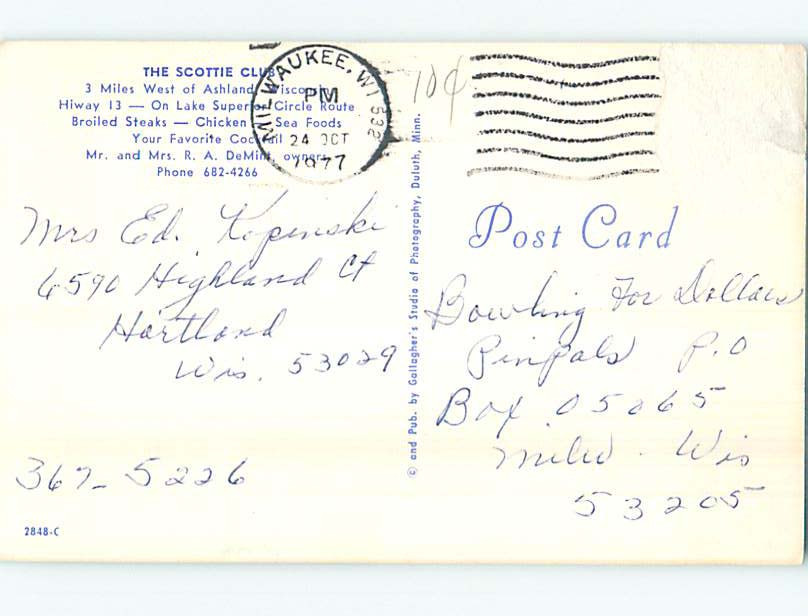 THE SCOTTIE CLUB
3 Miles West of Ashland, Wisconsin
Hiway 13 — On Lake Superior Circle Route
Broiled Steaks — Chicken Sea Foods
Your Favorite Cocktail
Mr. and Mrs. R. A. DeMint, owners
Phone 682-4266
MILWAUKEE, WI 532
PM
24 OCT
1977
10¢
Mrs Ed. Kopinski
6590 Highland Ct
Hartland
Wis. 53029
367-5226
2848-C
© and Pub. by Gallagher's Studio of Photography, Duluth, Minn.
Post Card
Bowling For Dollars
PinPals P.O
Box 05065
Milw. Wis
53205